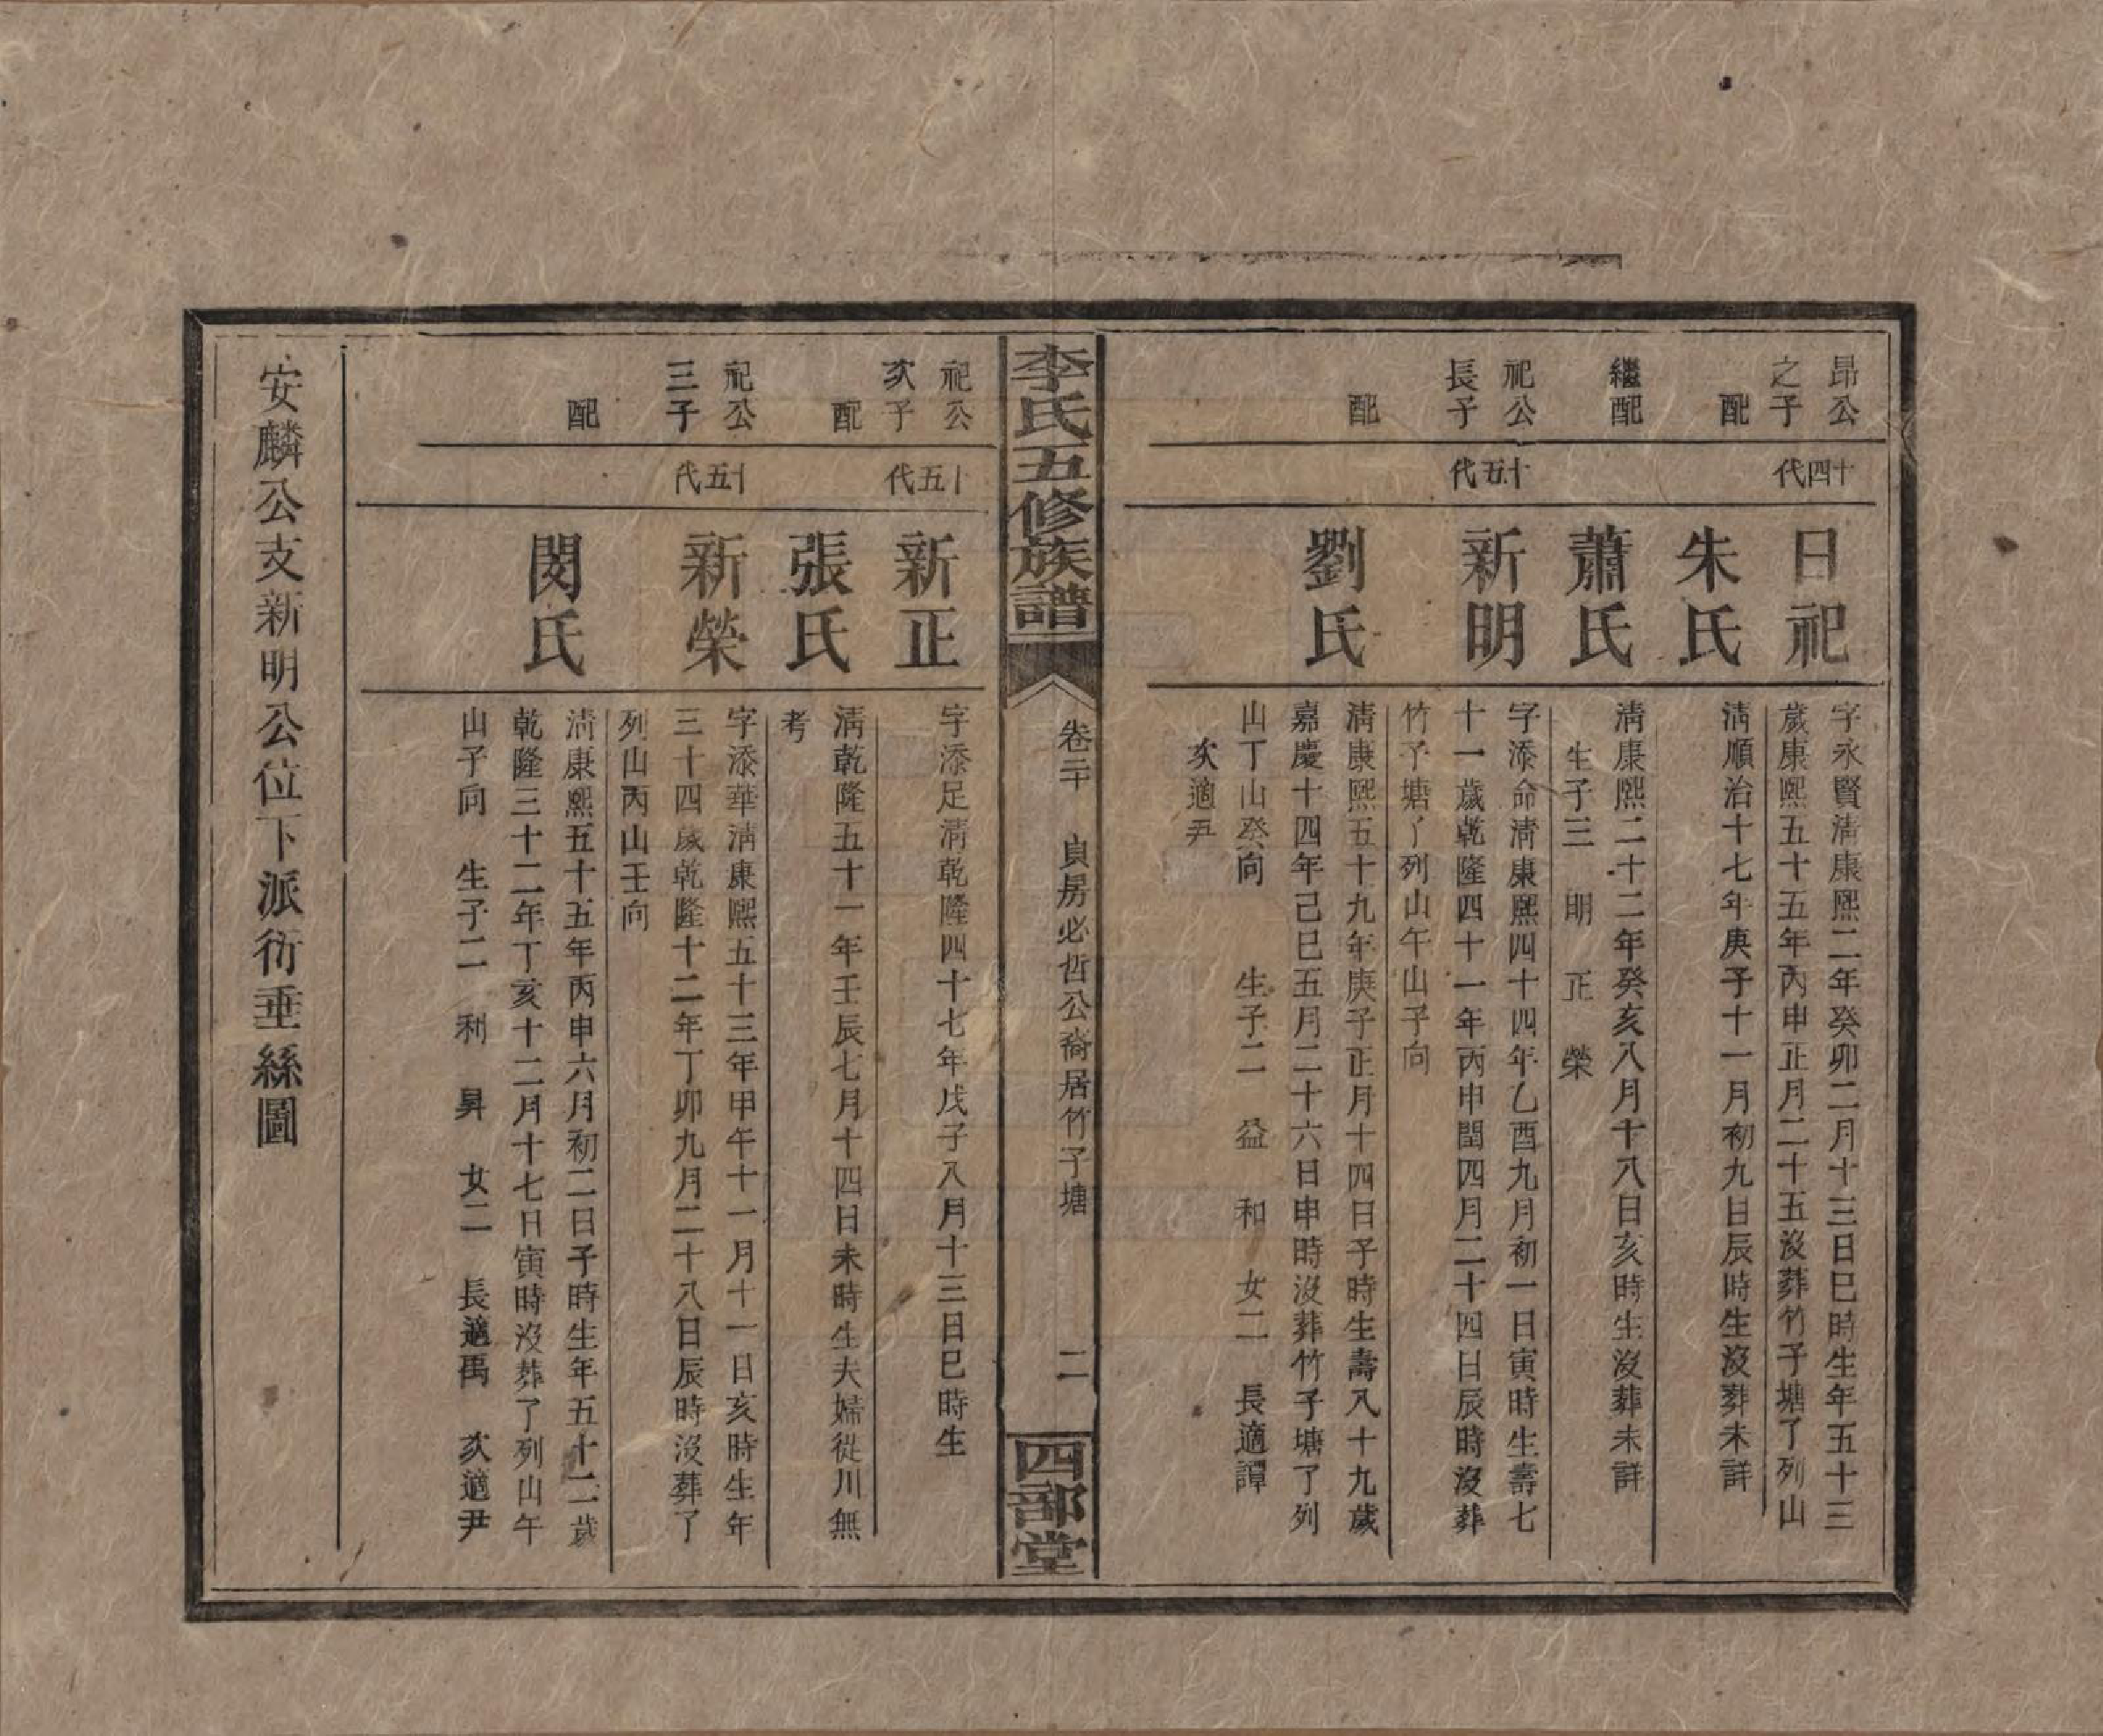 昂公之子
十四代
日祀
字永賢清康熙二年癸卯二月十三日巳時生年五十三
歲康熙五十五年丙申正月二十五沒葬竹子塘了列山
配
朱氏
清順治十七年庚子十一月初九日辰時生沒葬未詳
繼配
蕭氏
清康熙二十二年癸亥八月十八日亥時生沒葬未詳
生子三 明 正 榮
祀公長子
十五代
新明
字添命清康熙四十四年乙酉九月初一日寅時生壽七
十一歲乾隆四十一年丙申閏四月二十四日辰時沒葬
竹子塘了列山午山子向
配
劉氏
清康熙五十九年庚子正月十四日子時生壽八十九歲
嘉慶十四年己巳五月二十六日申時沒葬竹子塘了列
山丁山癸向 生子二 益 和 女二 長適譚
次適尹
李氏五修族譜
卷二十 貞房必哲公裔居竹子塘 二
四部堂
祀公次子
十五代
新正
字添足清乾隆四十七年戊子八月十三日巳時生
配
張氏
清乾隆五十一年壬辰七月十四日未時生夫婦從川無
考
祀公三子
十五代
新榮
字添華清康熙五十三年甲午十一月十一日亥時生年
三十四歲乾隆十二年丁卯九月二十八日辰時沒葬了
列山丙山壬向
配
閔氏
清康熙五十五年丙申六月初二日子時生年五十二歲
乾隆三十二年丁亥十二月十七日寅時沒葬了列山午
山子向 生子二 利 昇 女二 長適禹 次適尹
安麟公支新明公位下派衍垂絲圖